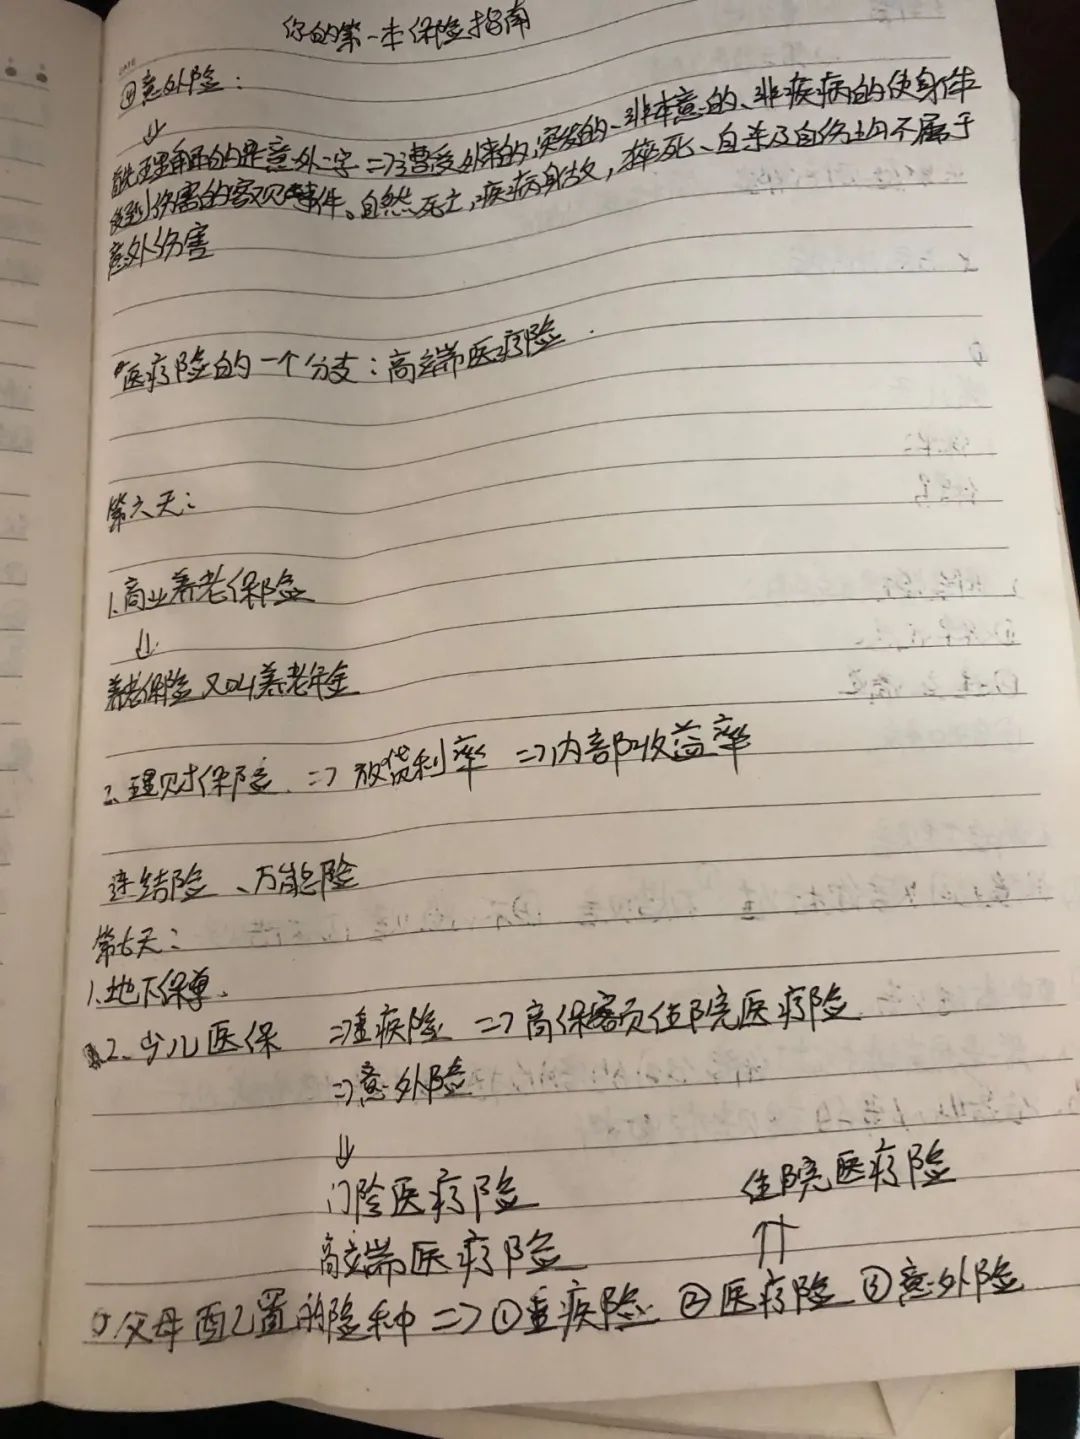 你的第一本保险指南
④意外险：
↓
首先理解的是意外二字 => 遭受外来的、突发的、非本意的、非疾病的使身体
受到伤害的客观事件。自然死亡，疾病身故，猝死、自杀及自伤均不属于
意外伤害
医疗险的一个分支：高端医疗险.
第六天：
1.商业养老保险
↓
养老保险 又叫养老年金
2、理财保险. => 放贷利率 => 内部收益率
连结险、万能险
第七天：
1、地下保单、
2、少儿医保 => 重疾险 => 高保额住院医疗险
=> 意外险
↓
门险医疗险 住院医疗险
高端医疗险 ⇑
父母配置的险种 => ①重疾险 ②医疗险 ③意外险